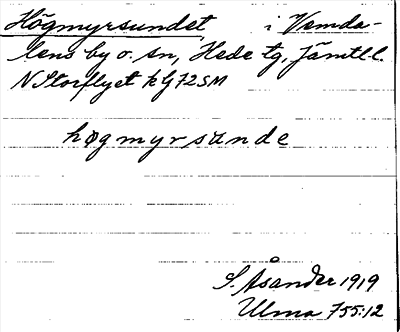 Högmyrsundet i Vemda-
lens by o. sn, Hede tg, Jämtl.l.
N Storflyet k G 72 SM
høgmyrsunde
S. Åsander 1919
Ulma 755:12